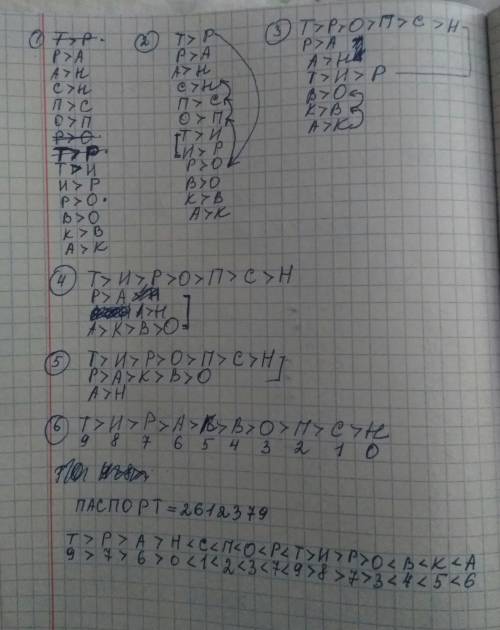 1
Т>Р
Р>А
А>Н
С>Н
П>С
О>П
Р>О
Т>Р
Т>И
И>Р
Р>О
В>О
К>В
А>К
2
Т>Р
Р>А
А>Н
С>Н
П>С
О>П
Т>И
И>Р
Р>О
В>О
К>В
А>К
3 Т>Р>О>П>С>Н
Р>А
А>Н
Т>И>Р
В>О
К>В
А>К
4 Т>И>Р>О>П>С>Н
Р>А
А>Н
А>К>В>О
5 Т>И>Р>О>П>С>Н
Р>А>К>В>О
А>Н
6 Т>И>Р>А>К>В>О>П>С>Н
9 8 7 6 5 4 3 2 1 0
ПАСПОРТ=2612379
Т>Р>А>Н<С<П<О<Р<Т>И>Р>О<В<К<А
9>7>6>0<1<2<3<7<9>8>7>3<4<5<6